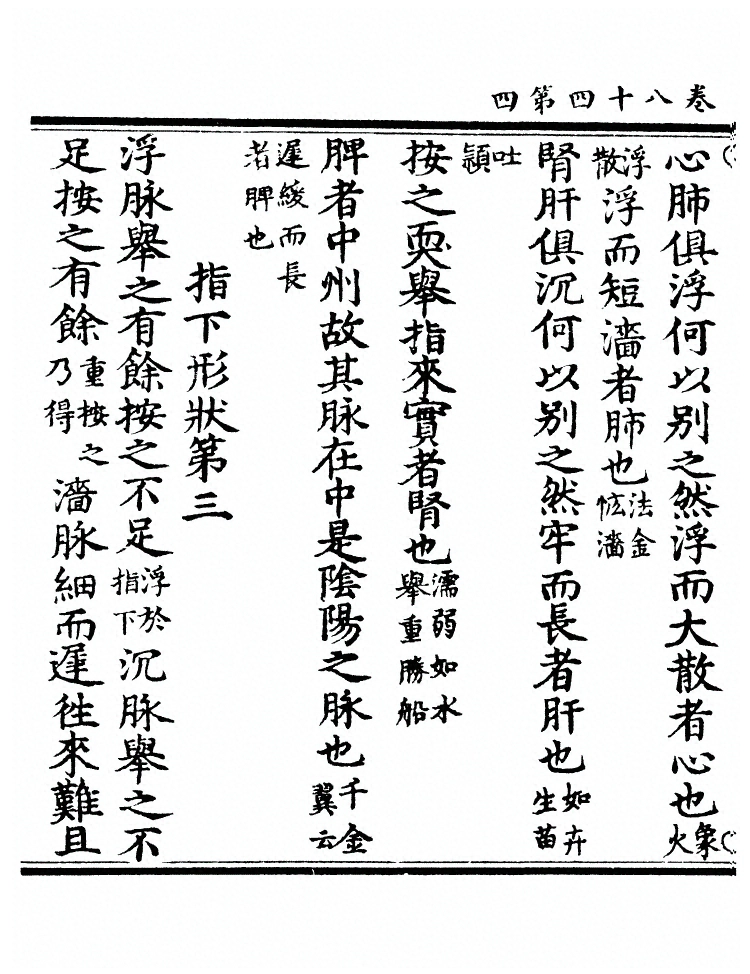 卷八十四第四
心肺俱浮何以別之然浮而大散者心也象火
浮散浮而短濇者肺也法金濇
腎肝俱沉何以別之然牢而長者肝也如卉生苗
吐穎
按之耎舉指來實者腎也濡弱如水舉重勝船
脾者中州故其脉在中是陰陽之脉也千金翼云
遲緩而長者脾也
指下形狀第三
浮脉舉之有餘按之不足浮於指下沉脉舉之不
足按之有餘重按之乃得濇脉細而遲徃來難且